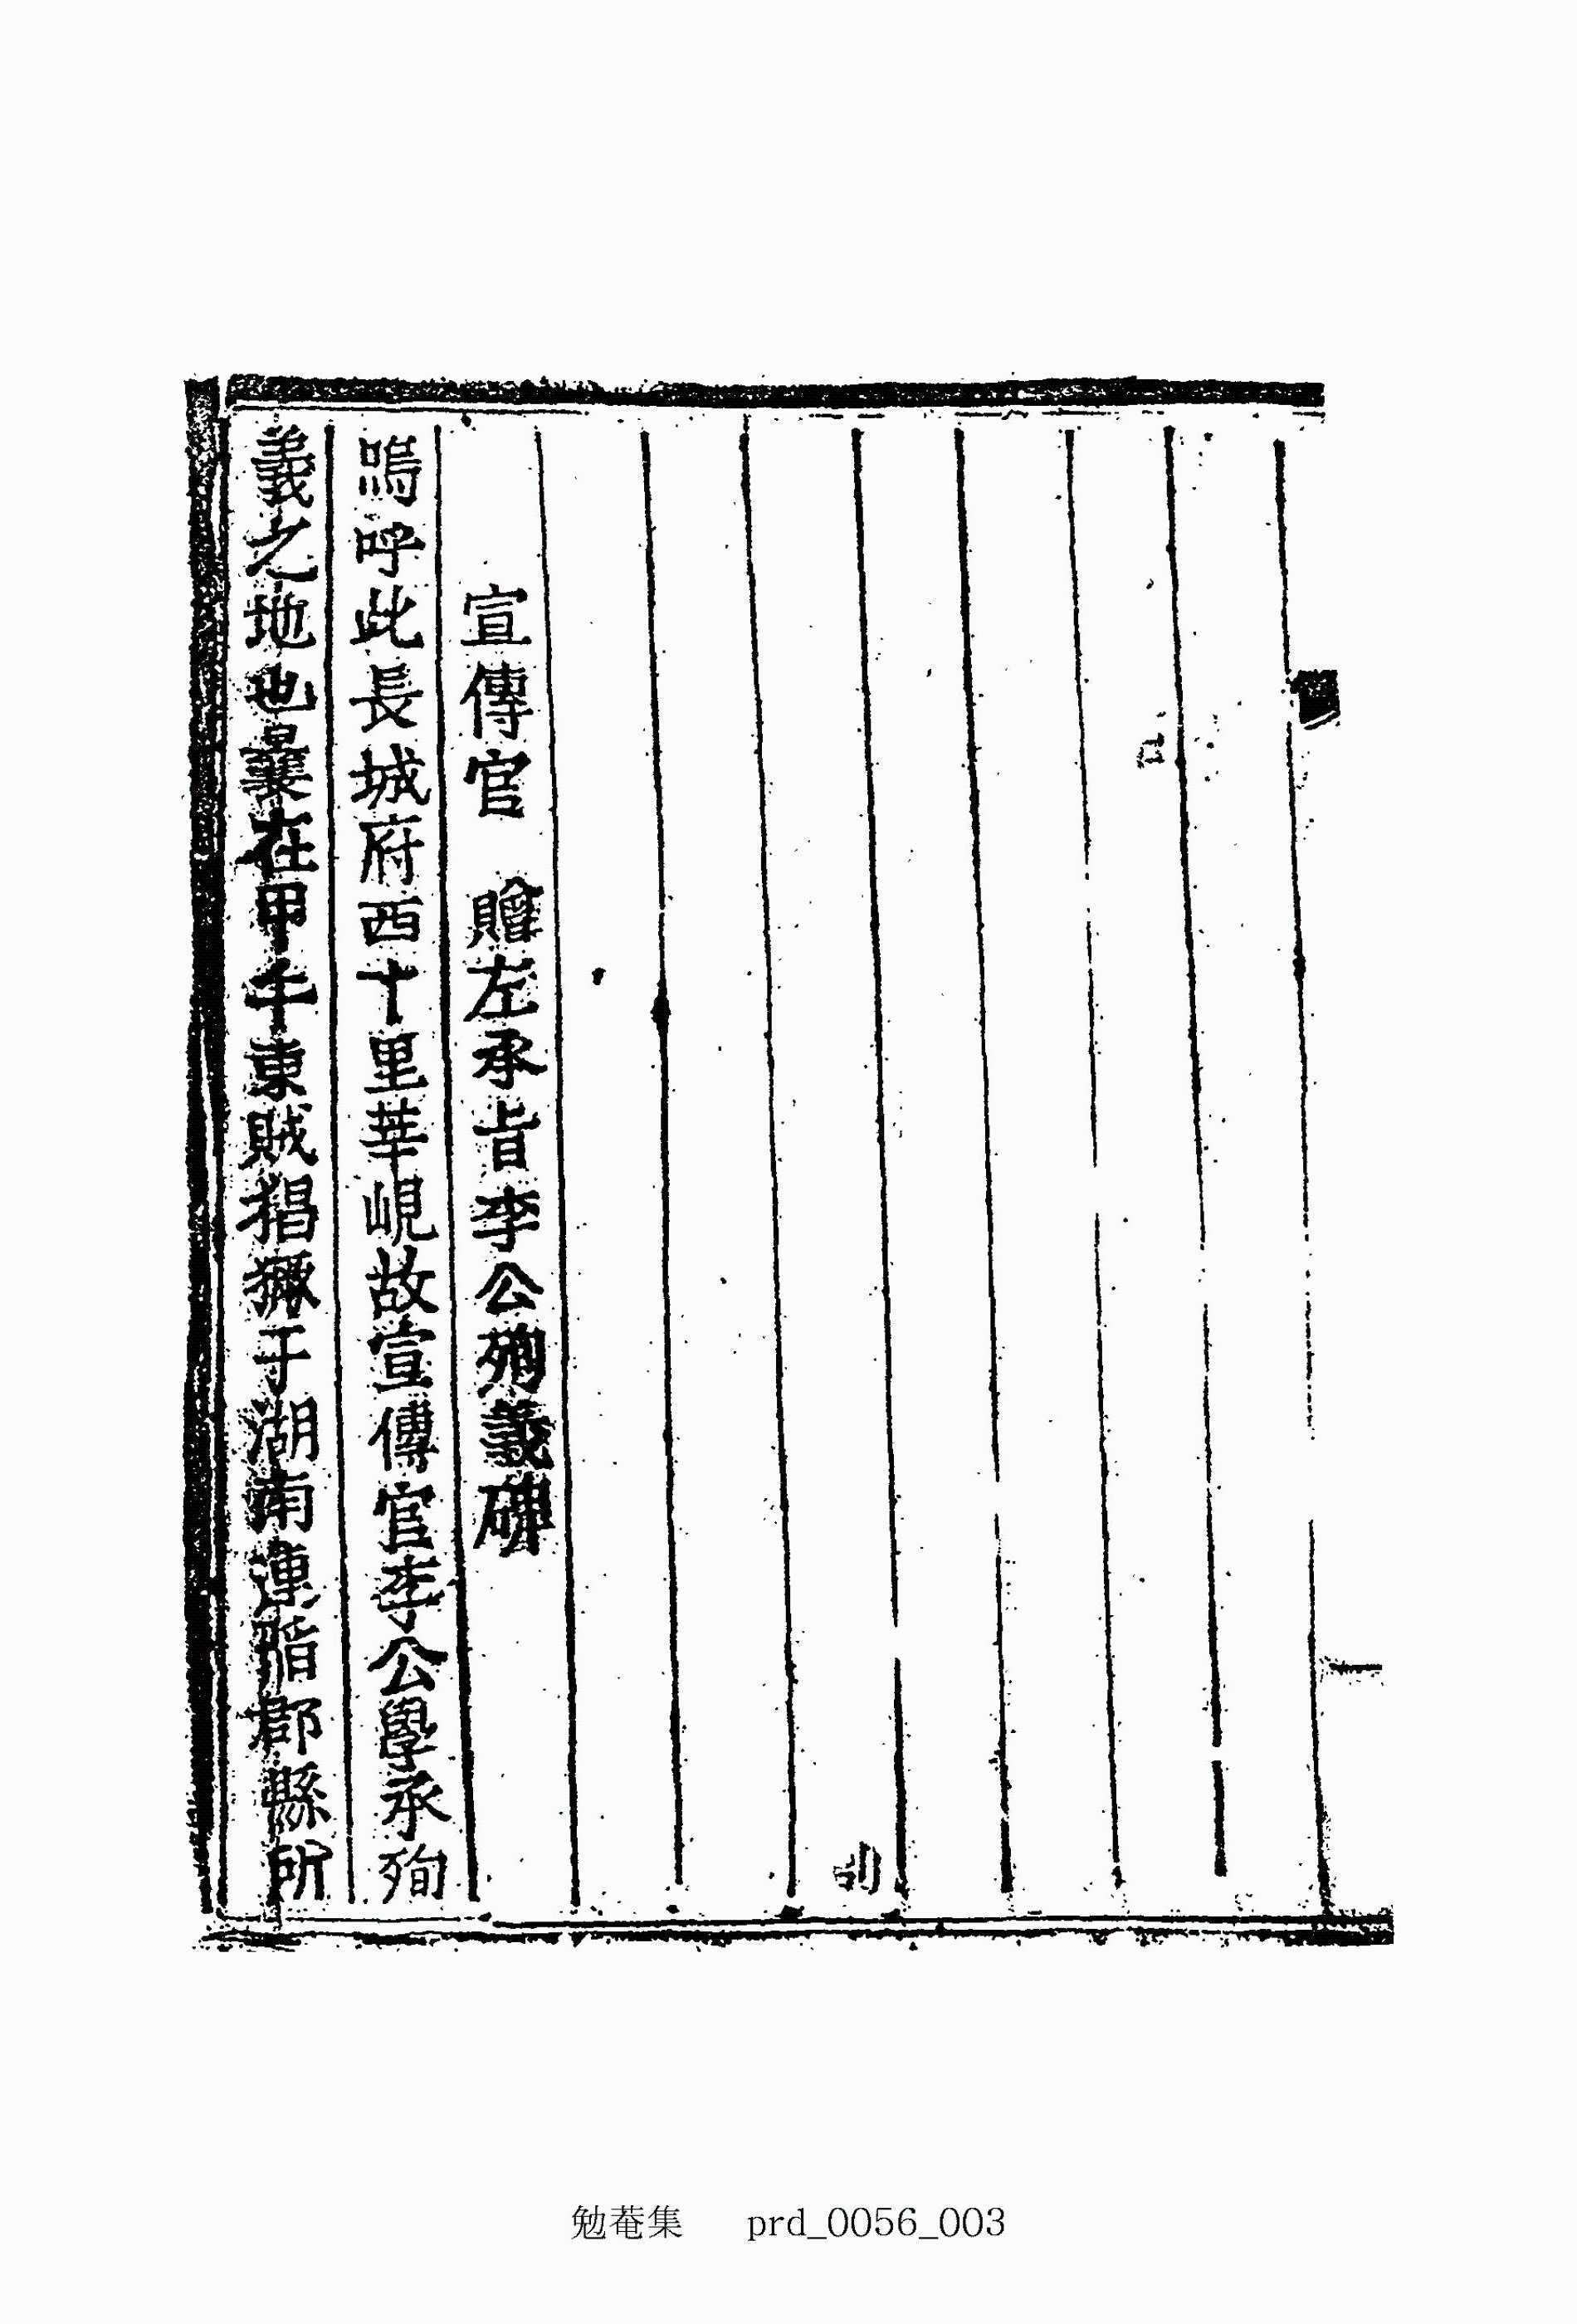 宣傳官 贈左承旨李公殉義碑
嗚呼此長城府西十里華峴故宣傳官李公學承殉
義之地也曩在甲午東賊猖獗于湖南連陷郡縣所
勉菴集 prd_0056_003